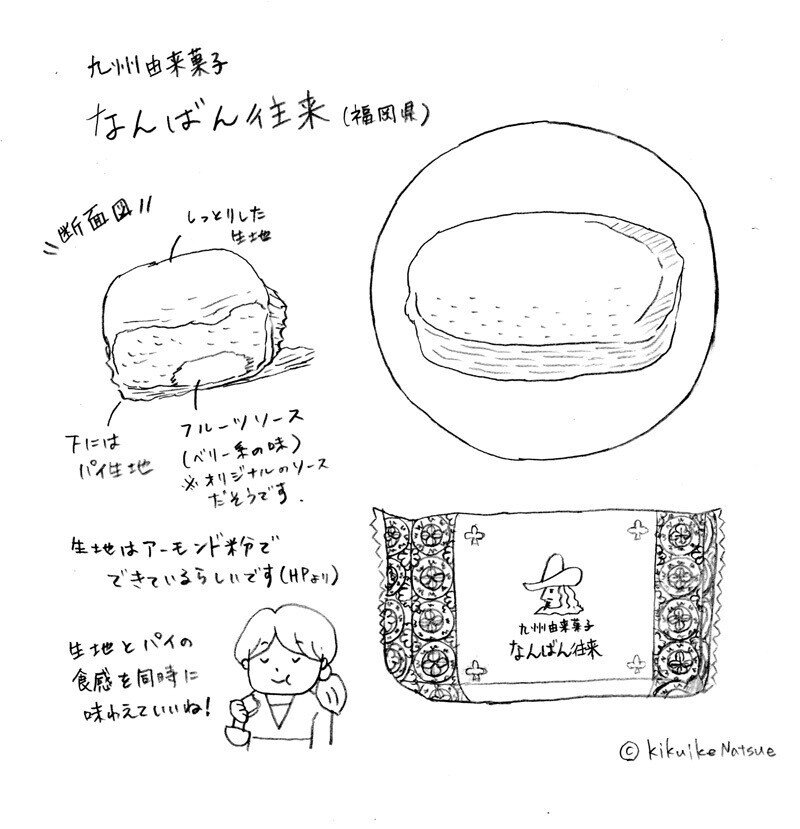 九州由来菓子
なんばん往来(福岡県)
断面図
しっとりした
生地
下には
パイ生地
フルーツソース
(ベリー系の味)
※オリジナルのソース
だそうです.
生地はアーモンド粉で
できているらしいです(HPより)
生地とパイの
食感を同時に
味わえていいね!
九州由来菓子
なんばん往来
© kikuike Natsue